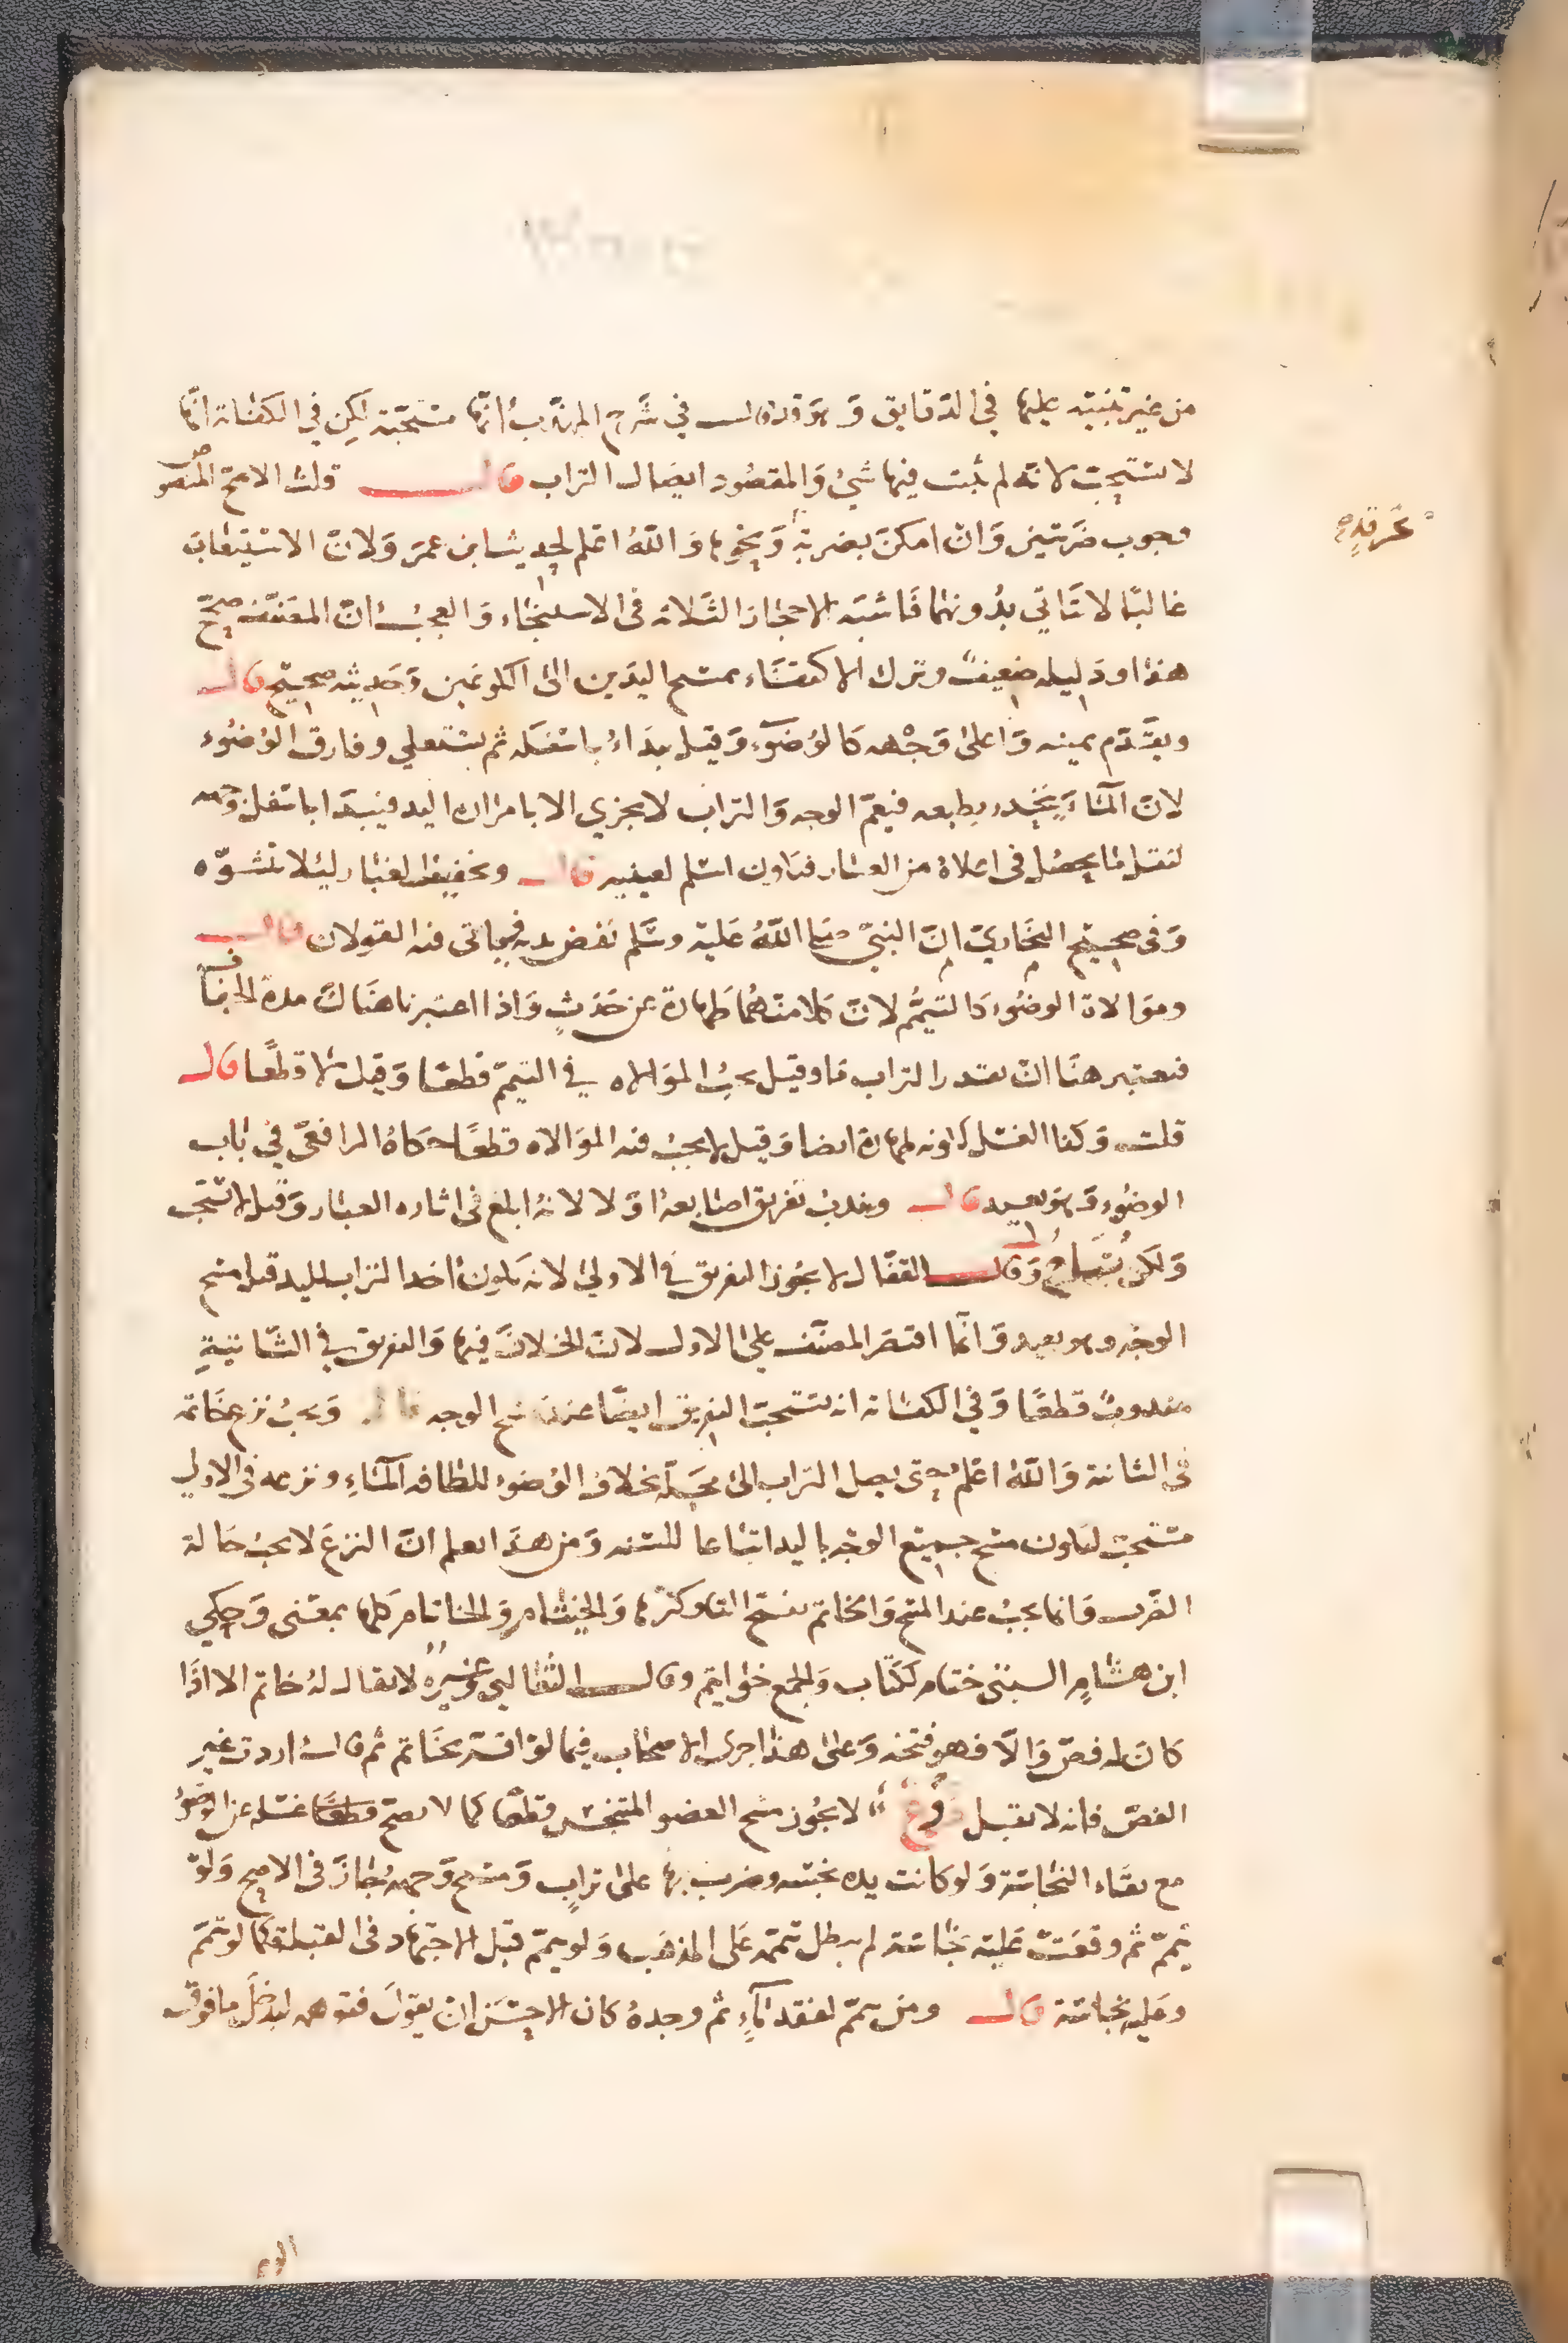 من غير تنبيه عليها في الدقايق وهو قد قال في شرح المهذب انها مستحبة لكن في الكفاية انها
لا تستحب لانه لم يثبت فيها شيء والمقصود ايصال التراب قال قلت الاصح المنصوص
وجوب ضربتين وان امكن بضربة ونحوها والله اعلم لحديث ابن عمر ولان الاستيعاب
غالبا لا تتاتي بدونهما فاشبه الاحجار الثلاثة في الاستنجاء والعجب ان المصنف صحح
هذا ودليله ضعيف وترك الاكتفاء بمسح اليدين الى الكوعين وحديثه صحيح قال
ويقدم يمينه واعلى وجهه كالوضوء وقيل يبداء باسفله ثم يستعلي وفارق الوضوء
لان الماء ينحدر بطبعه فيعم الوجه والتراب لا يجزي الا بامرار اليد فيبدا باسفل وجهه
لتقل ما يحصل في اعلاه من الغبار فتكون اسلم لعينيه قال وتخفيف الغبار ليلا تشوه
وفي صحيح البخاري ان النبي صلى الله عليه وسلم نفض يديه فيهاتى فيه القولان قال
وموالاة الوضوء كالتيمم لان كلا منهما طهارة عن حدث واذا اعتبرنا هناك مدة الجفاف
فنعتبر هنا ان نقدر التراب ما وقيل يجب الموالاه في التيمم قطعا وقيل لا قطعا قال
قلت وكذا الغسل لكونه طهارة ايضا وقيل لا يجب فيه الموالاه قطعا حكاه الرافعي في باب
الوضوء وهو بعيد قال ويندب تفريق اصابعه اولا لانه ابلغ في اثاره الغبار وقيل لا تستحب
ولكن يباح وقال القفال لا يجوز التفريق في الاولى لانه يكون اخذ التراب لليد قبل مسح
الوجه وهو بعيد وانما اقتصر المصنف على الاول لان الخلاف فيها والتفريق في الثانية
مندوب قطعا وفي الكفاية انه تستحب التفريق ايضا عند مسح الوجه قال ويجب نزع خاتمه
في الثانية والله اعلم حتى يصل التراب الى محله بخلاف الوضوء للطافه الماء ونزعه في الاولى
مستحب ليكون مسح جميع الوجه باليد اتباعا للسنه ومن هذا يعلم ان النزع لا يجب حالة
الضرب وانما يجب عند المسح والخاتم بفتح التاء وكسرها والخيتام والخاتام كلها بمعنى وحكي
ابن هشام السبتي ختام ككتاب والجمع خواتيم وقال الثعالبي وغيره لا يقال له خاتم الا اذا
كان له فص والا فهو فتخه وعلى هذا اجرى الاصحاب فيما لو اقر بخاتم ثم قال اردت غير
الفص فانه لا يقبل فرع لا يجوز مسح العضو المتنجس قطعا كما لا يصح قطعا غسله عن الوضوء
مع بقاء النجاسة ولو كانت يده نجسه وضرب بها على تراب ومسح وجهه جاز في الاصح ولو
تيمم ثم وقعت عليه نجاسة لم يبطل تيممه على المذهب ولو تيمم قبل الاجتهاد في القبلة كما لو تيمم
وعليه نجاسة قال ومن تيمم لفقد ماء ثم وجده كان الاحسن ان يقول فتوهمه ليدخل ما فوق